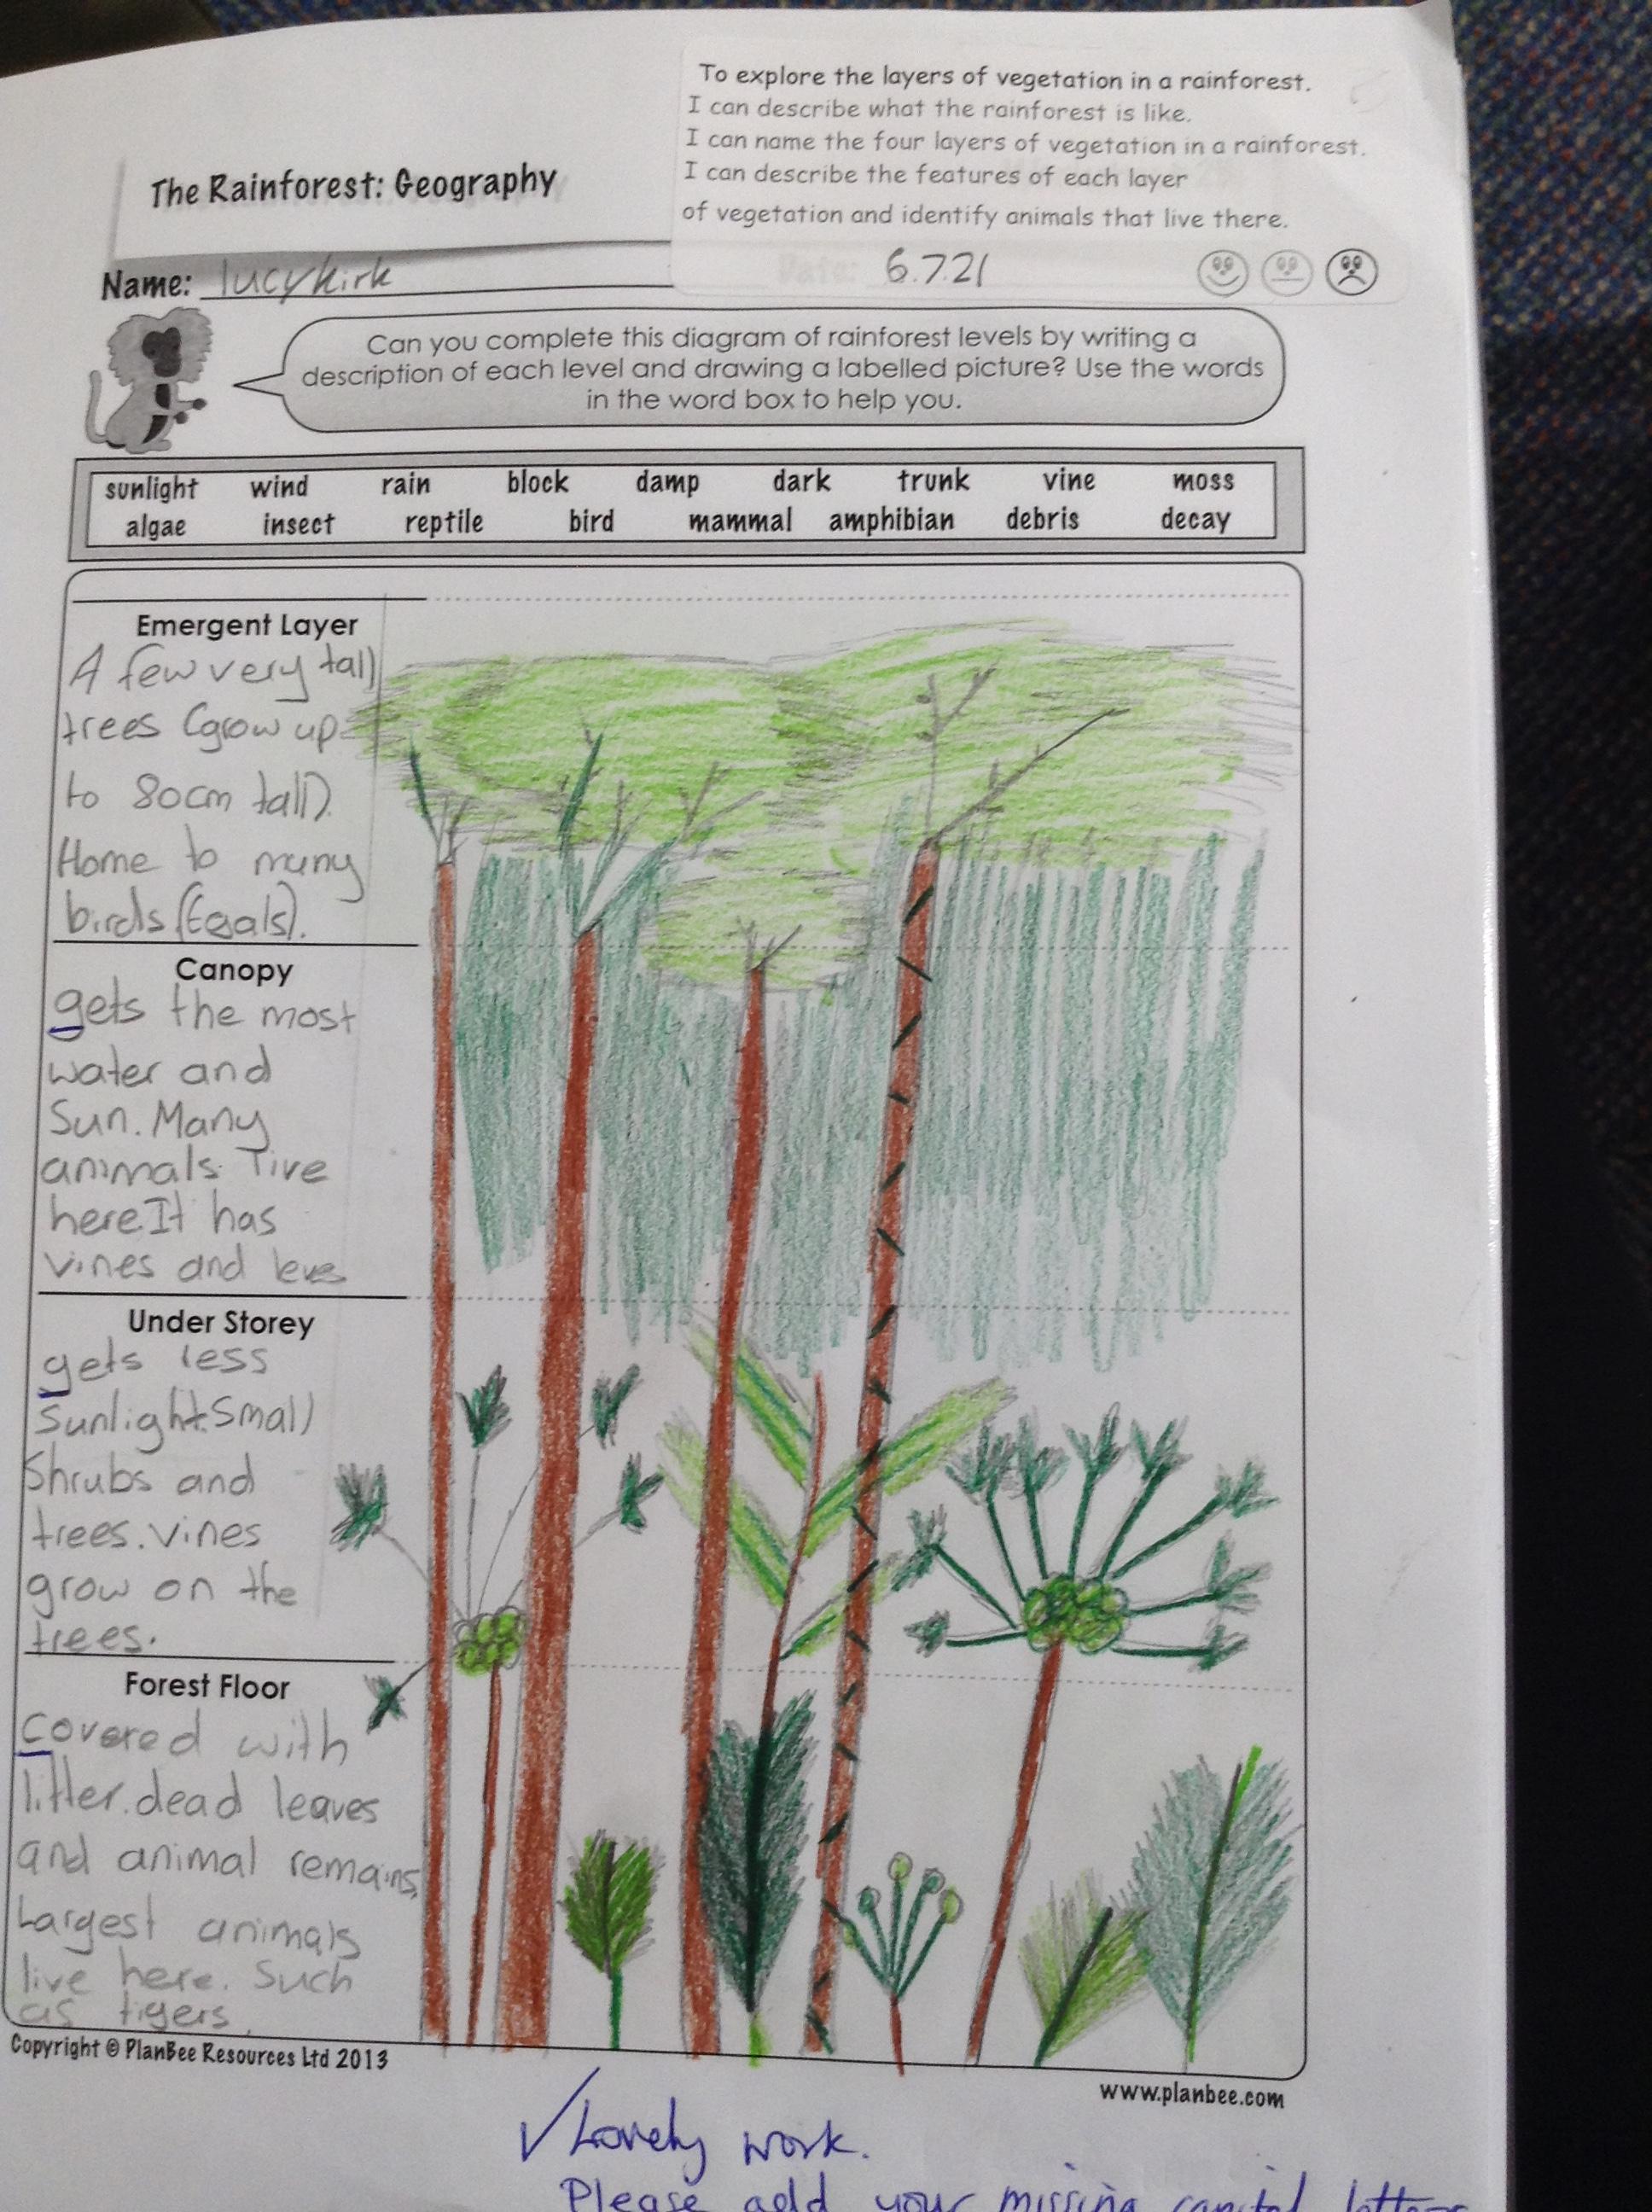 To explore the layers of vegetation in a rainforest.
I can describe what the rainforest is like.
I can name the four layers of vegetation in a rainforest.
I can describe the features of each layer
of vegetation and identify animals that live there.
The Rainforest: Geography
Date: 6.7.21
Name: lucy kirk
Can you complete this diagram of rainforest levels by writing a
description of each level and drawing a labelled picture? Use the words
in the word box to help you.
sunlight wind rain block damp dark trunk vine moss
algae insect reptile bird mammal amphibian debris decay
Emergent Layer
A few very tall
trees (grow up
to 80cm tall).
Home to many
birds (Egals).
Canopy
gets the most
water and
Sun. Many
animals live
here It has
vines and leves
Under Storey
gets less
Sunlight. Small
Shrubs and
trees. vines
grow on the
trees.
Forest Floor
covered with
litter. dead leaves
and animal remains,
Largest animals
live here. Such
as tigers.
Copyright © PlanBee Resources Ltd 2013
www.planbee.com
✓ Lovely work.
Please add your missing capital letters